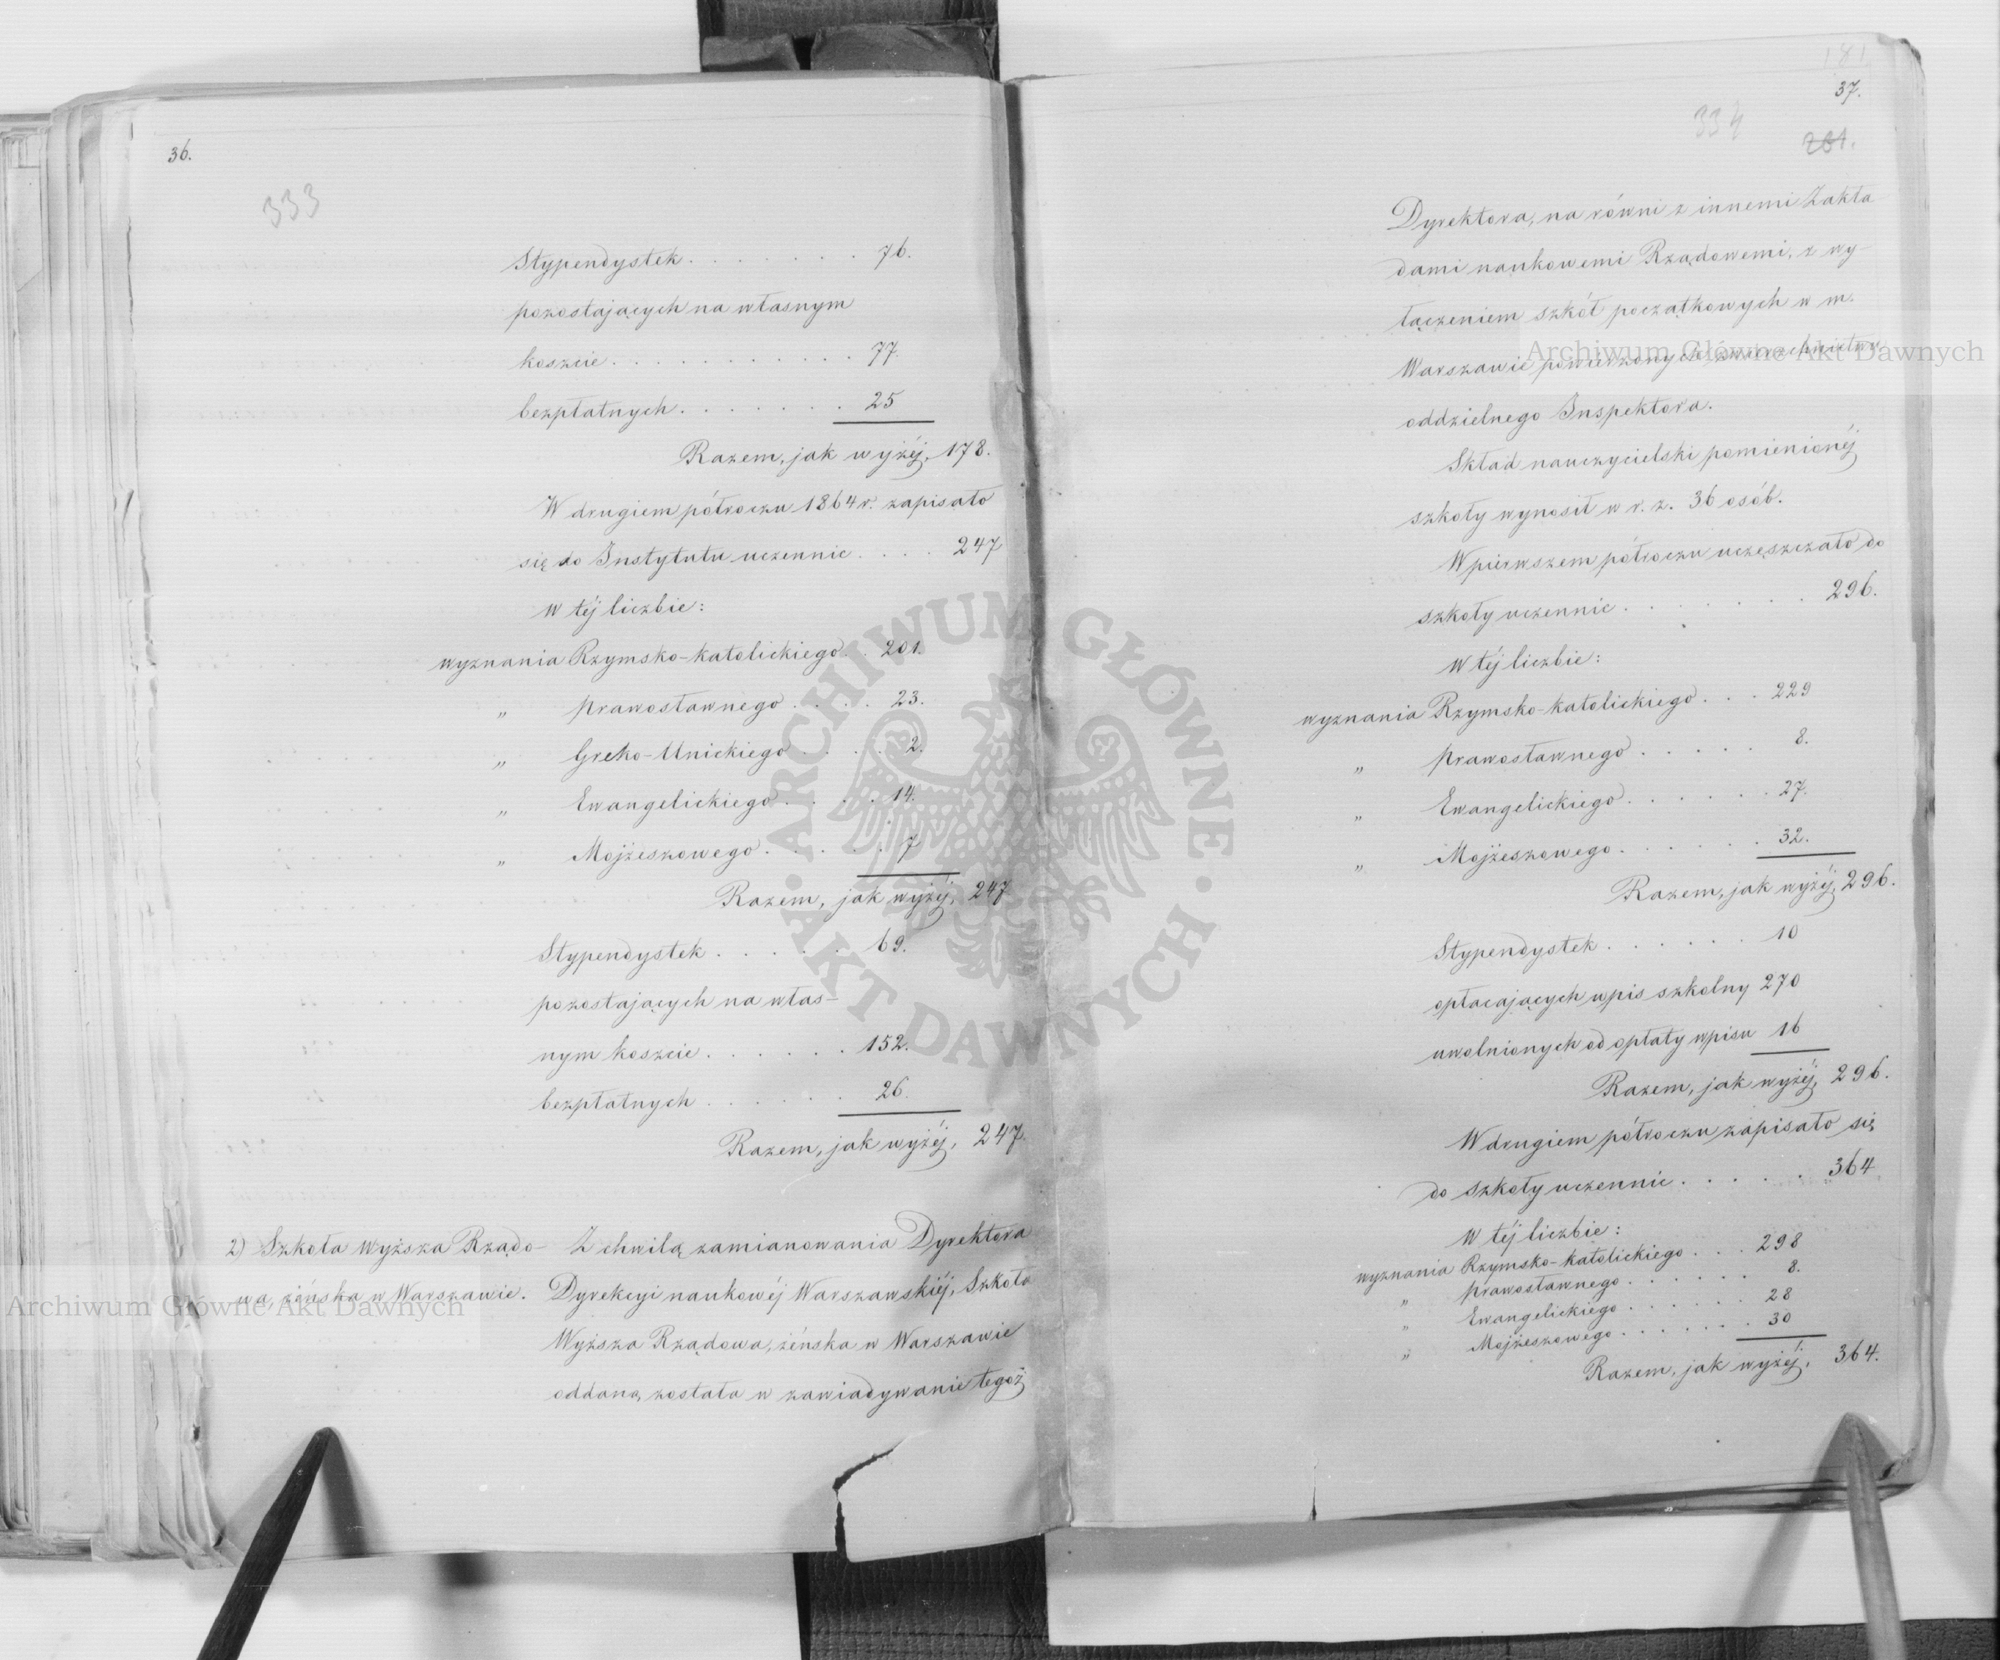 36.
333
Stypendystek . . . . . . . 76.
pozostających na własnym
koszcie . . . . . . . . . . . . 77.
bezpłatnych . . . . . . . . 25
Razem, jak wyżéj, 178.
W drugiem półroczu 1864 r. zapisało
się do Instytutu uczennic . . . . 247
w téj liczbie:
wyznania Rzymsko-katolickiego . . 201.
„ prawosławnego . . . . 23.
„ Greko-Unickiego . . . . 2.
„ Ewangelickiego . . . . 14.
„ Mojżeszowego . . . . . . 7
Razem, jak wyżéj, 247
Stypendystek . . . . . 69.
pozostających na włas-
nym koszcie . . . . . . 152.
bezpłatnych . . . . . . 26.
Razem, jak wyżéj, 247.
2) Szkoła Wyższa Rządo-
wa, żeńska w Warszawie.
Z chwilą zamianowania Dyrektora
Dyrekcyi naukowéj Warszawskiéj, Szkoła
Wyższa Rządowa, żeńska w Warszawie
oddaną została w zawiadywanie tegoż
181
37.
334
201.
Dyrektora, na równi z innemi Zakła
dami naukowemi Rządowemi, z wy-
łączeniem szkół początkowych w m.
Warszawie powierzonych zwierzchnictwu
oddzielnego Inspektora.
Skład nauczycielski pomienionéj
szkoły wynosił w r. z. 36 osób.
W pierwszem półroczu uczęszczało do
szkoły uczennic . . . . . . . 296.
w téj liczbie:
wyznania Rzymsko-katolickiego . . . 229
„ prawosławnego . . . . . 8.
„ Ewangelickiego . . . . . . 27.
„ Mojżeszowego . . . . . . 32.
Razem, jak wyżéj, 296.
Stypendystek . . . . . . 10
opłacających wpis szkolny 270
uwolnionych od opłaty wpisu 16
Razem, jak wyżéj, 296.
W drugiem półroczu zapisało się
do szkoły uczennic . . . . . 364
w téj liczbie:
wyznania Rzymsko-katolickiego . . . 298
„ prawosławnego . . . . . . 8.
„ Ewangelickiego . . . . . . 28
„ Mojżeszowego . . . . . . . 30
Razem, jak wyżéj, 364.
Archiwum Główne Akt Dawnych
Archiwum Główne Akt Dawnych
ARCHIWUM GŁÓWNE · AKT DAWNYCH ·